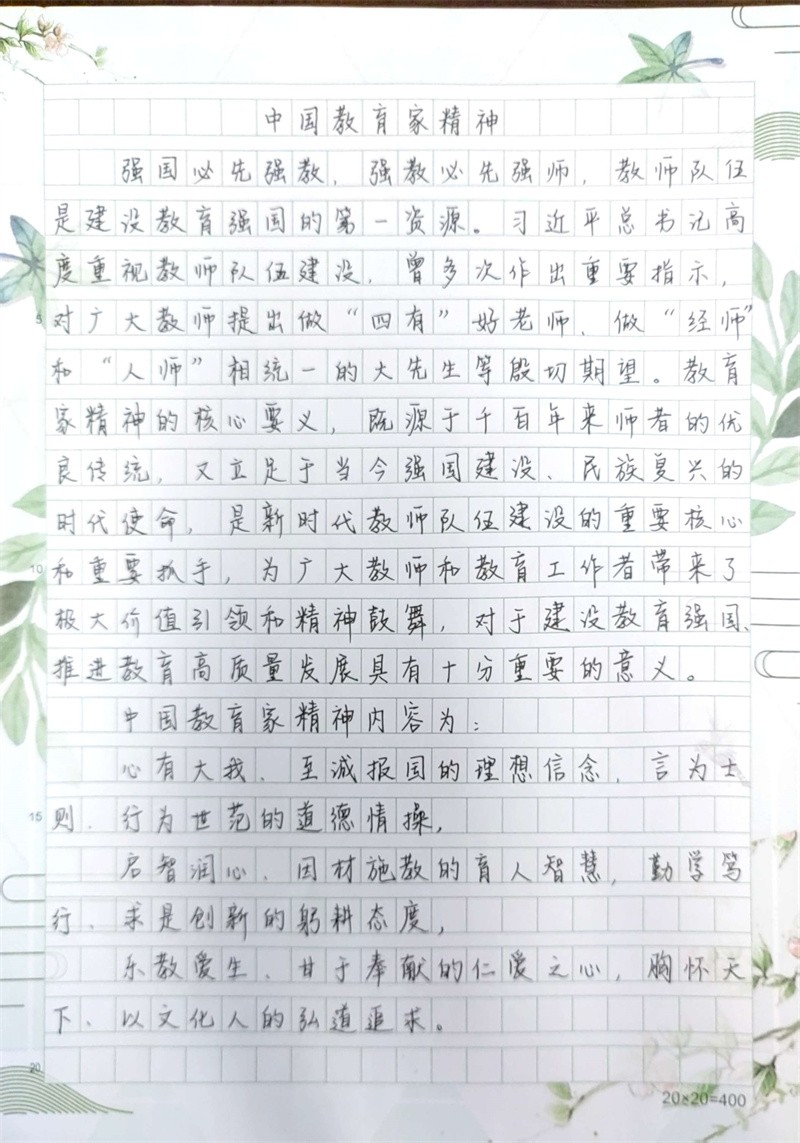 中国教育家精神
强国必先强教，强教必先强师，教师队伍
是建设教育强国的第一资源。习近平总书记高
度重视教师队伍建设，曾多次作出重要指示，
5
对广大教师提出做“四有”好老师、做“经师”
和“人师”相统一的大先生等殷切期望。教育
家精神的核心要义，既源于千百年来师者的优
良传统，又立足于当今强国建设、民族复兴的
时代使命，是新时代教师队伍建设的重要核心
10
和重要抓手，为广大教师和教育工作者带来了
极大价值引领和精神鼓舞，对于建设教育强国、
推进教育高质量发展具有十分重要的意义。
中国教育家精神内容为：
心有大我、至诚报国的理想信念，言为士
15
则、行为世范的道德情操，
启智润心、因材施教的育人智慧，勤学笃
行、求是创新的躬耕态度，
乐教爱生、甘于奉献的仁爱之心，胸怀天
下、以文化人的弘道追求。
20
20×20=400